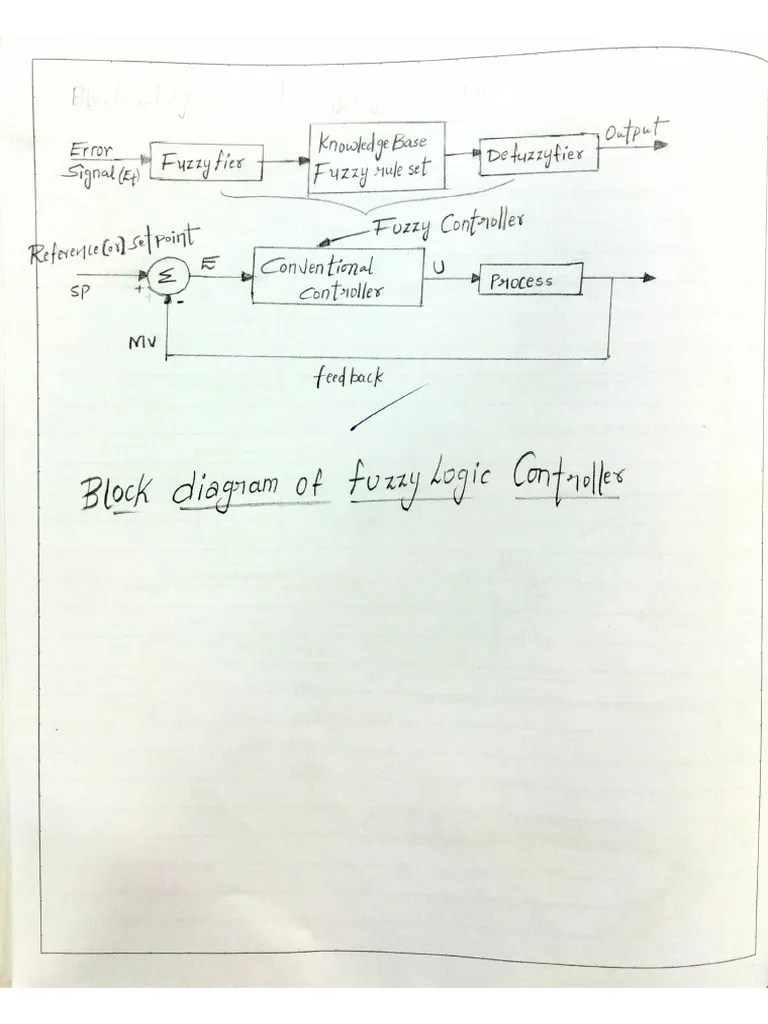 Error
Signal (Et)
Fuzzyfier
Knowledge Base
Fuzzy rule set
Defuzzyfier
Output
Fuzzy Controller
Reference (or) setpoint
SP
+
-
Σ
E
Conventional
Controller
U
Process
MV
feedback
Block diagram of fuzzy Logic Controller